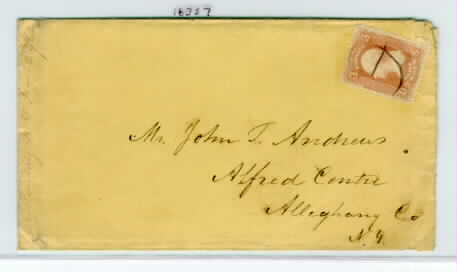 18357
Mr. John T. Andrews
Alfred Centre
Alleghany Co
N. Y.